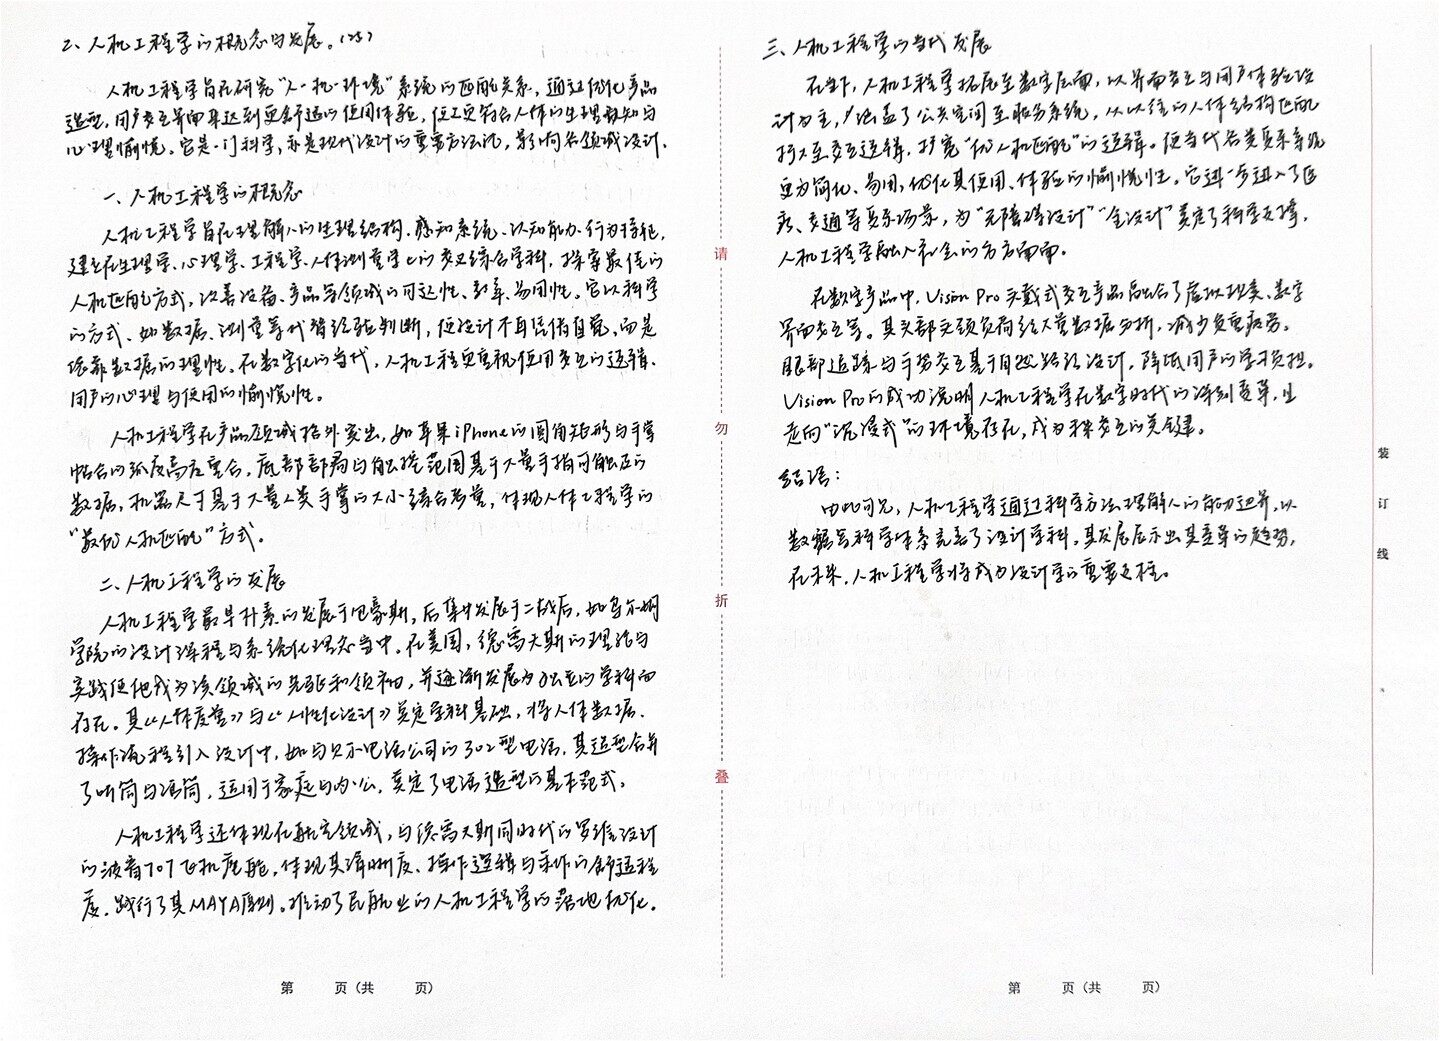 2、人机工程学的概念与发展。(25)
人机工程学旨在研究“人-机-环境”系统的匹配关系，通过优化产品
造型，用户交互界面来达到更舒适的使用体验，使工更符合人体的生理认知与
心理愉悦。它是一门科学，亦是现代设计的重要方法论，影响各领域设计。
一、人机工程学的概念
人机工程学旨在理解人的生理结构、感知系统、认知能力、行为特征，
建立在生理学、心理学、工程学、人体测量学上的交叉综合学科，探寻最佳的
人机匹配方式，改善设备、产品等领域的可达性、效率、易用性。它以科学
的方式、如数据、测量等代替经验判断，使设计不再凭借直觉，而是
依靠数据的理性。在数字化的当代，人机工程更重视使用交互的逻辑、
用户的心理与使用的愉悦性。
人机工程学在产品领域格外突出，如苹果iPhone的圆角矩形与手掌
贴合的弧度高度重合，底部布局与触控范围基于大量手指可触及的
数据，机器尺寸基于大量人类手掌的大小综合考量，体现人体工程学的
“最优人机匹配”方式。
二、人机工程学的发展
人机工程学最早朴素的发展于包豪斯，后集中发展于二战后，如乌尔姆
学院的设计课程与系统化理念当中。在美国，德雷夫斯的理论与
实践使他成为该领域的先驱和领袖，并逐渐发展为独立的学科而
存在。其《人体度量》与《人性化设计》奠定学科基础，将人体数据、
操作流程引入设计中，如与贝尔电话公司的302型电话，其造型合并
了听筒与话筒，适用于家庭与办公，奠定了电话造型的基本范式。
人机工程学还体现在航空领域，与德雷夫斯同时代的罗维设计
的波音707飞机座舱，体现其清晰度、操作逻辑与乘作的舒适程
度，践行了其MAYA原则。推动了民航业的人机工程学的落地优化。
第 页（共 页）
请
勿
折
叠
三、人机工程学的当代发展
在当下，人机工程学拓展至数字层面，以界面交互与用户体验设
计为主，涵盖了公共空间至服务系统，从以往的人体结构匹配
扩大至交互逻辑，扩宽“优人机匹配”的逻辑。使当代各类复杂系统
更为简化、易用，优化其使用、体验的愉悦性。它进一步进入了医
疗、交通等复杂场景，为“无障碍设计”“全设计”奠定了科学支撑，
人机工程学融入社会的方方面面。
在数字产品中，Vision Pro头戴式交互产品融合了虚拟现实、数字
界面交互等。其头部头颈负荷经大量数据分析，减少负重疲劳。
眼部追踪与手势交互基于自然路径设计，降低用户的学习负担。
Vision Pro的成功说明人机工程学在数字时代的深刻变革，且
走向“沉浸式”的环境存在，成为未来交互的关键。
结语：
由此可见，人机工程学通过科学方法理解人的能力边界，以
数据与科学体系完善了设计学科。其发展展示出其变革的趋势，
在未来，人机工程学将成为设计学的重要支柱。
第 页（共 页）
装
订
线